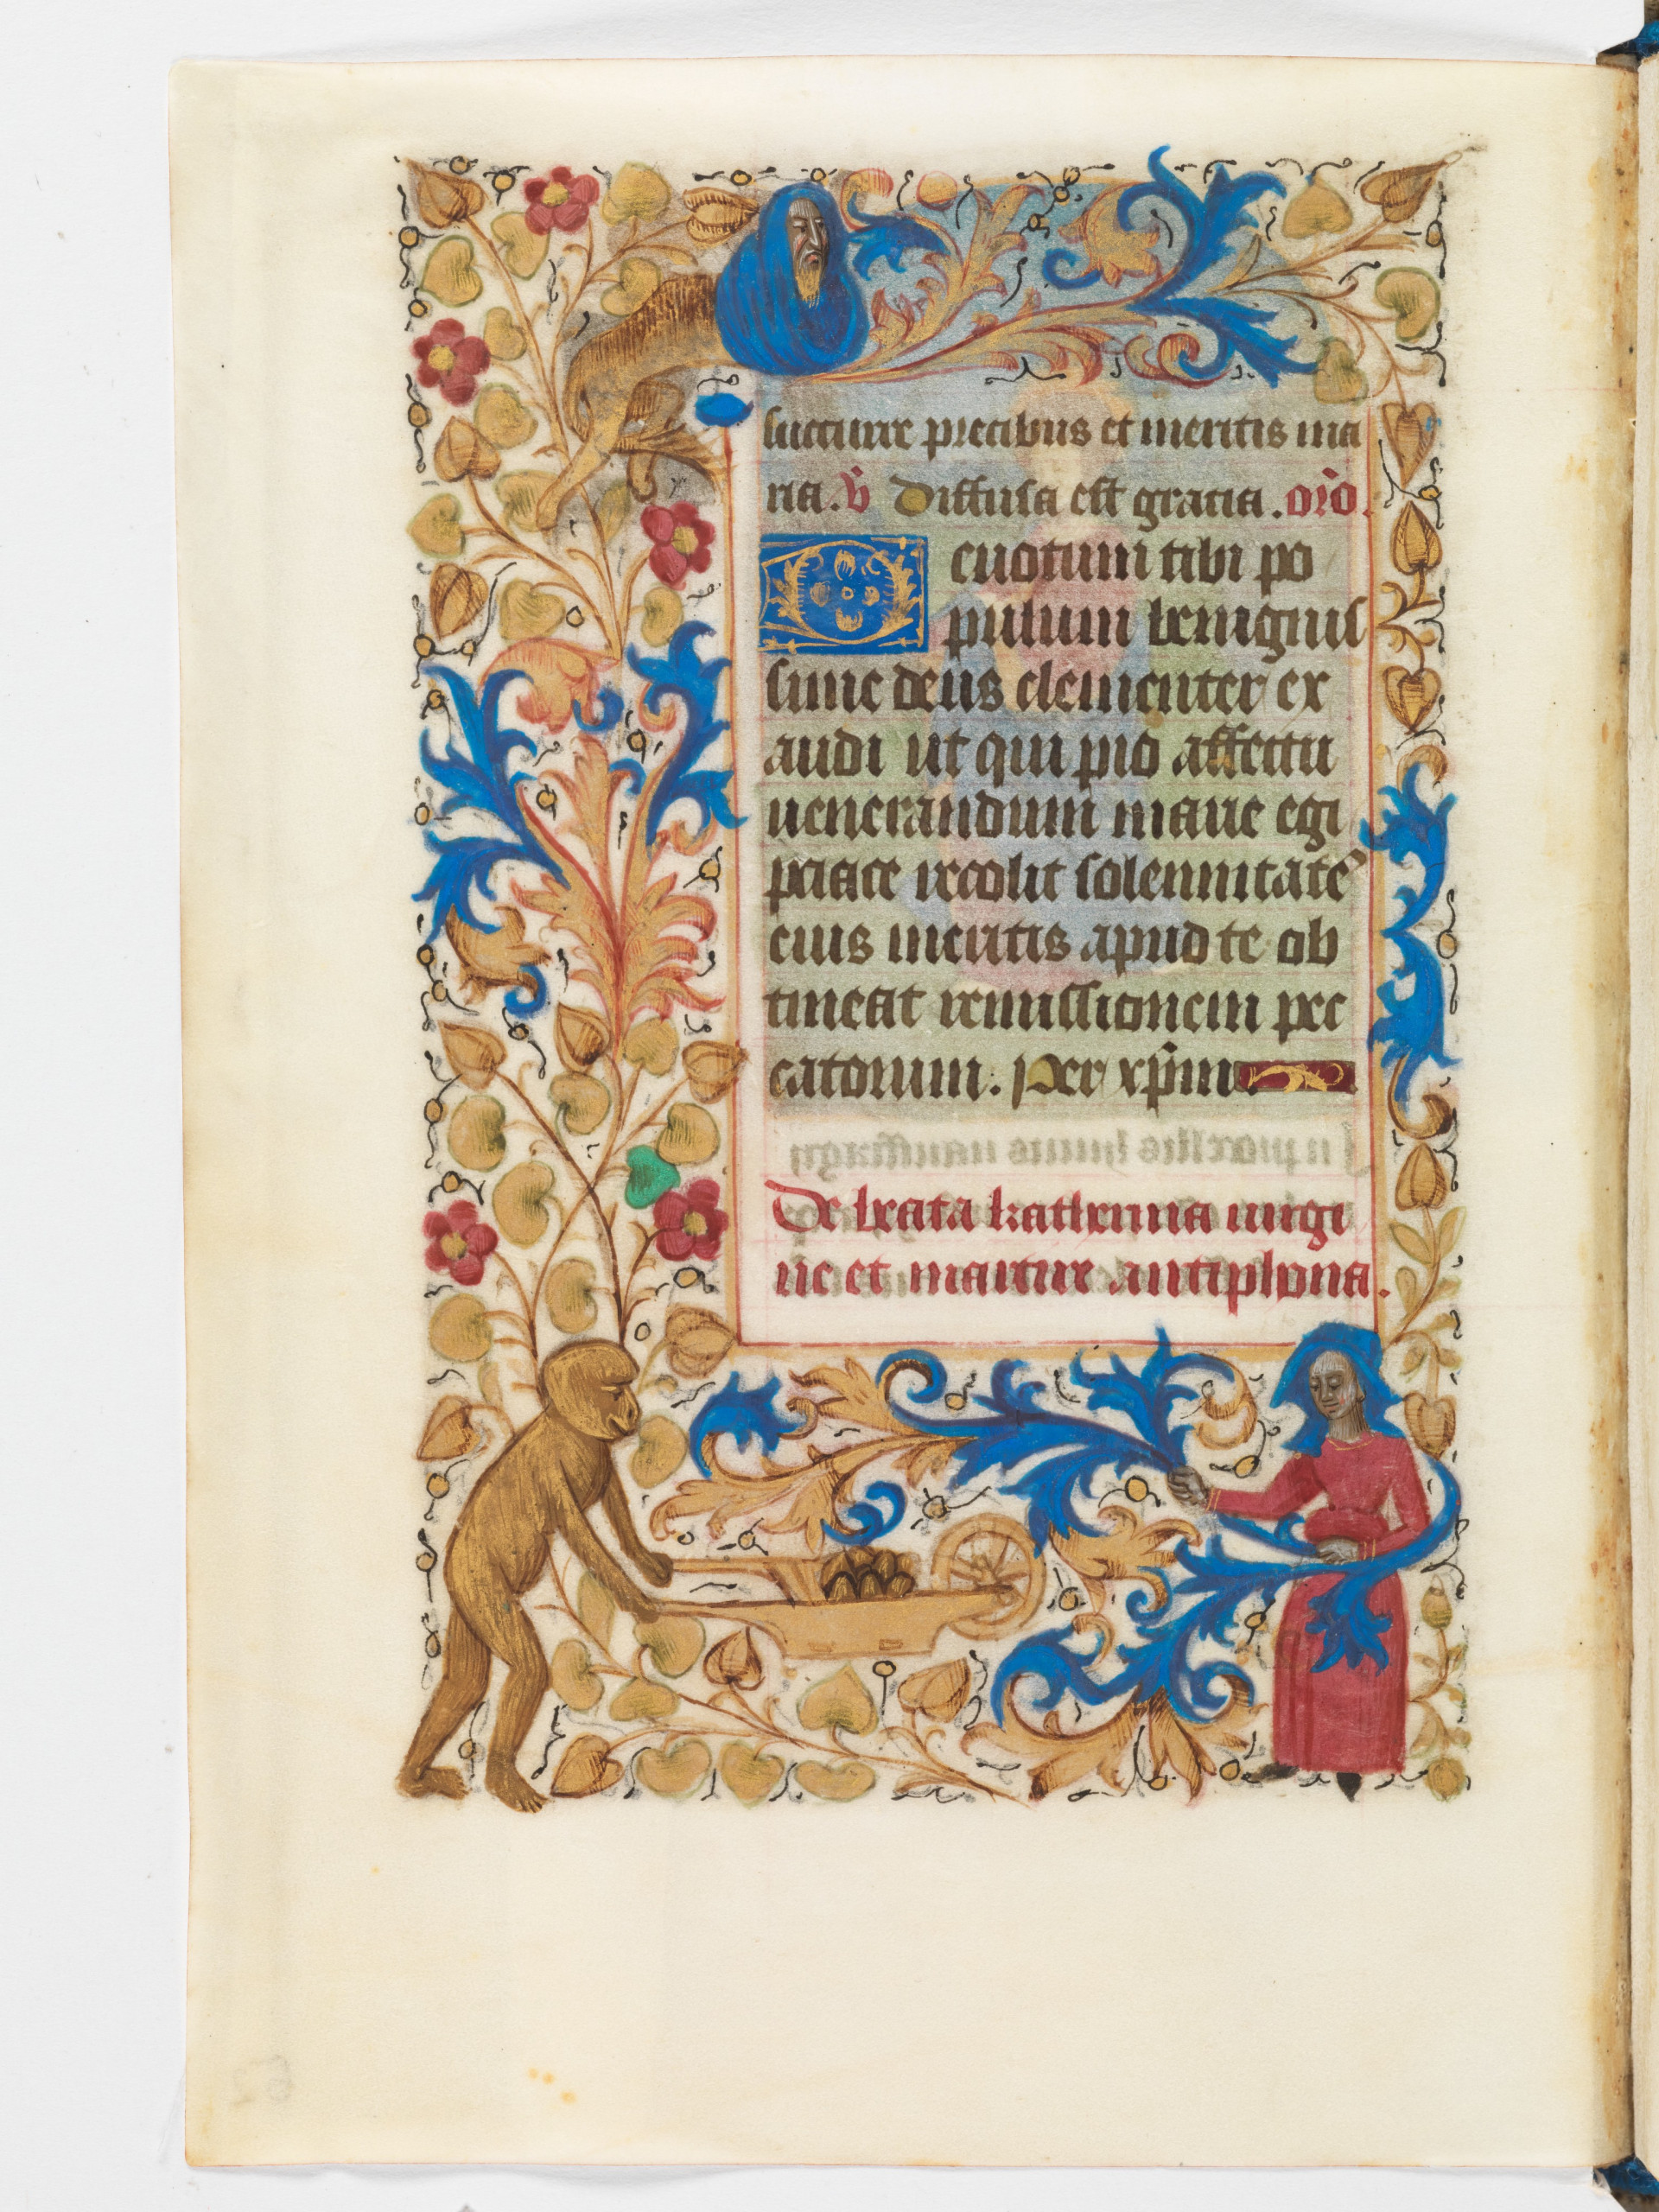 succurre precibus et meritis ma
ria. v̄ Diffusa est gratia. orō.
Deuotum tibi po
pulum benignis
sime deus clementer ex
audi ut qui pio affectu
uenerandum marie egi
pciace recolit solennitatē
eius meritis apud te ob
tineat remissionem pec
catorum. Per xp̄m.
De beata katherina uirgi
ne et martire antiphona.